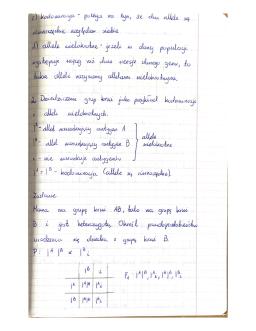 c) kodominacja - polega na tym, że dwa allele są
nierozerwalne względem siebie
d) allele wielokrotne - jeżeli w danej populacji
występuje więcej niż dwie wersje danego genu, to
takie allele nazywamy allelami wielokrotnymi.
2. Dziedziczenie grup krwi jako przykład kodominacji
i alleli wielokrotnych.
Iᴬ - allel warunkujący antygen A
Iᴮ - allel warunkujący antygen B } allele wielokrotne
i - nie warunkuje antygenów
Iᴬ = Iᴮ - kodominacja (allele są nierozłączne).
Zadanie
Mama ma grupę krwi AB, tata ma grupę krwi
B i jest heterozygotą. Określ prawdopodobieństwo
urodzenia się dziecka z grupą krwi B.
P: Iᴬ Iᴮ × Iᴮ i
Iᴮ i
Iᴬ IᴬIᴮ Iᴬi
Iᴮ IᴮIᴮ Iᴮi